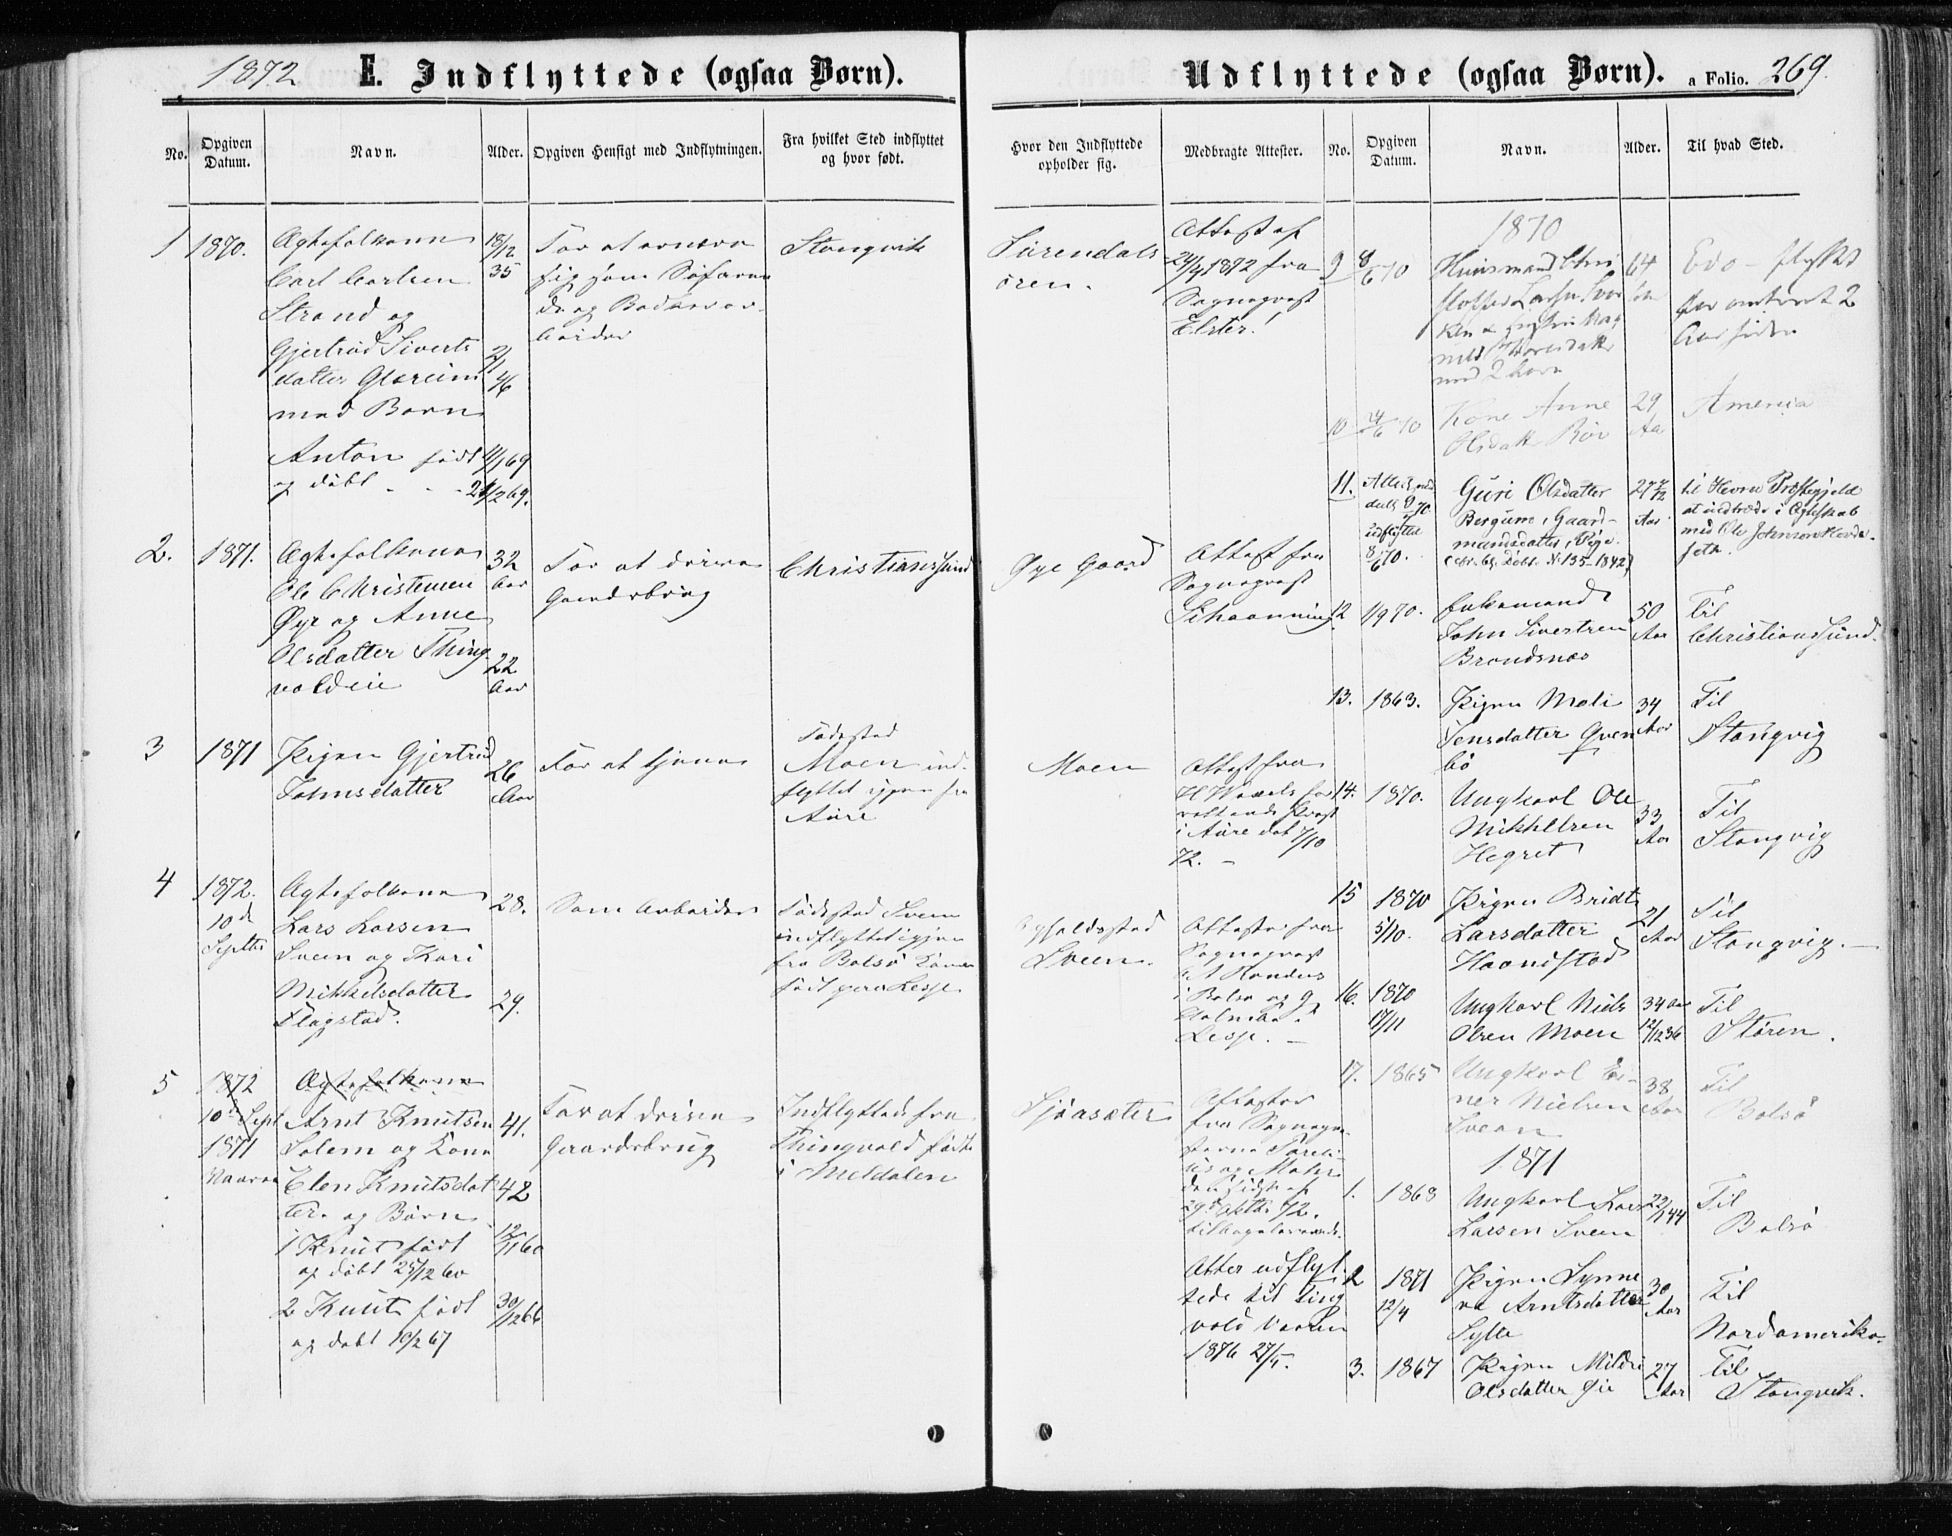 1872
E. Indflyttede (ogsaa Børn).
No.
Opgiven Datum.
Navn.
Alder.
Opgiven Hensigt med Indflytningen.
Fra hvilket Sted indflyttet
og hvor født.
1
1870.
Ægtefolkene
Carl Carlsen
Strand og
Gjertrud Siverts
datter Glærum
med Børn
Anton født 4/1 69
og døbt - - 21/2 69.
18/12
35
2/1
46
For at ernære
sig som Søfaren
de og
Stangvik
2.
1871.
Ægtefolkene
Ole Christensen
Øye og Anne
Olsdatter Thing
voldeie
32
Aar
22
Aar
For at drive
Gaardsbrug
Christianssund
3
1871
Pigen Gjertrud
Johnsdatter
26
Aar
For at tjene
Fødested
Moen ind-
flyttet igjen fra
Aure
4
1872.
10d
Septbr
Ægtefolkene
Lars Larsen
Sveen og Kari
Mikkelsdatter
Flagstad.
28.
29.
Som Arbeider
Fødested Sveen
indflyttet igjen
fra Bolsø Konen
født paa Lesje
5
1872
10d Sept
1871
Vaaren
Ægtefolkene
Arnt Knutsen
Solem og Kone
Elen Knutsdat
ter. og Børn
1 Knut født
og døbt 25/12 60
2 Knut født
og døbt 10/2 67
41.
42
12/11 60
30/12 66
For at drive
Gaardsbrug
Indflyttede fra
Thingvold født
i Meldalen
Udflyttede (ogsaa Børn).
a Folio. 269.
Hvor den Indflyttede
opholder sig.
Medbragte Attester.
No.
Opgiven
Datum.
Navn.
Alder.
Til hvad Sted.
Surendals
øren.
Attest af
24/4 1872 fra
Sognepræst
Elster!
Øye Gaard
Attest fra
Sognepræst
Schaanning
Moen
Attest fra
i Aure dat 7/10
72. -
Opholdssted
Sveen.
Attester fra
Sognepræst
i Bolsø og
Lesje. -
Sjøasæter
Attester
fra Sognepræ
sterne
tilbageleverede.
Atter udflyt
tede til Ting
vold Vaaren
1876 27/5.
1870
9
8/6 70
Huusmand Chri
stoffer Larsen
med 2 børn
64
Edø - flyttet
for omtrent 2
Aar siden
10
24/6 70
Kone Anne
Olsdatt Bøe
29
Aar
America
11.
udflyttet
8/6 70.
Guri Olsdatter
Bergum, Gaard-
mandsdatter, Pige.
(Døbt. N. 135-1842)
27 1/2
Aar
til Hevne Præstegjeld
at indtræde i Ægteskab
med Ole Johnson
12
1/9 70.
Enkemand
John Sivertsen
Brandsnæs
50
Aar
Til
Christianssund.
13.
1863.
Pigen Mali
Jensdatter Qven
bø
34
Aar
Til
Stangvig
14.
1870.
Ungkarl Ole
Mikkelsen
Hegset
33
Aar
Til
Stangvig
15
1870
5/10.
Pigen Bridt
Larsdatter
Haandstad
21
Aar
Til
Stangvig. -
16.
1870
17/11
Ungkarl Niels
Olsen Moen
34 Aar
12/12 36
Til
Støren.
17.
1865
Ungkarl
Nielsen
Sveen
38
Aar
Til
Bolsø
1871
1.
1868
Ungkarl Lars
Larsen Sveen
22/1 44
Til
Bolsø
2
1871
12/4
Pigen Synne
ve Arntsdatter
Sylte
30
Aar
Til
Nordamerika.
3.
1867
Pigen Mildri
Olsdatter Øie
27
Aar
Til
Stangvik.